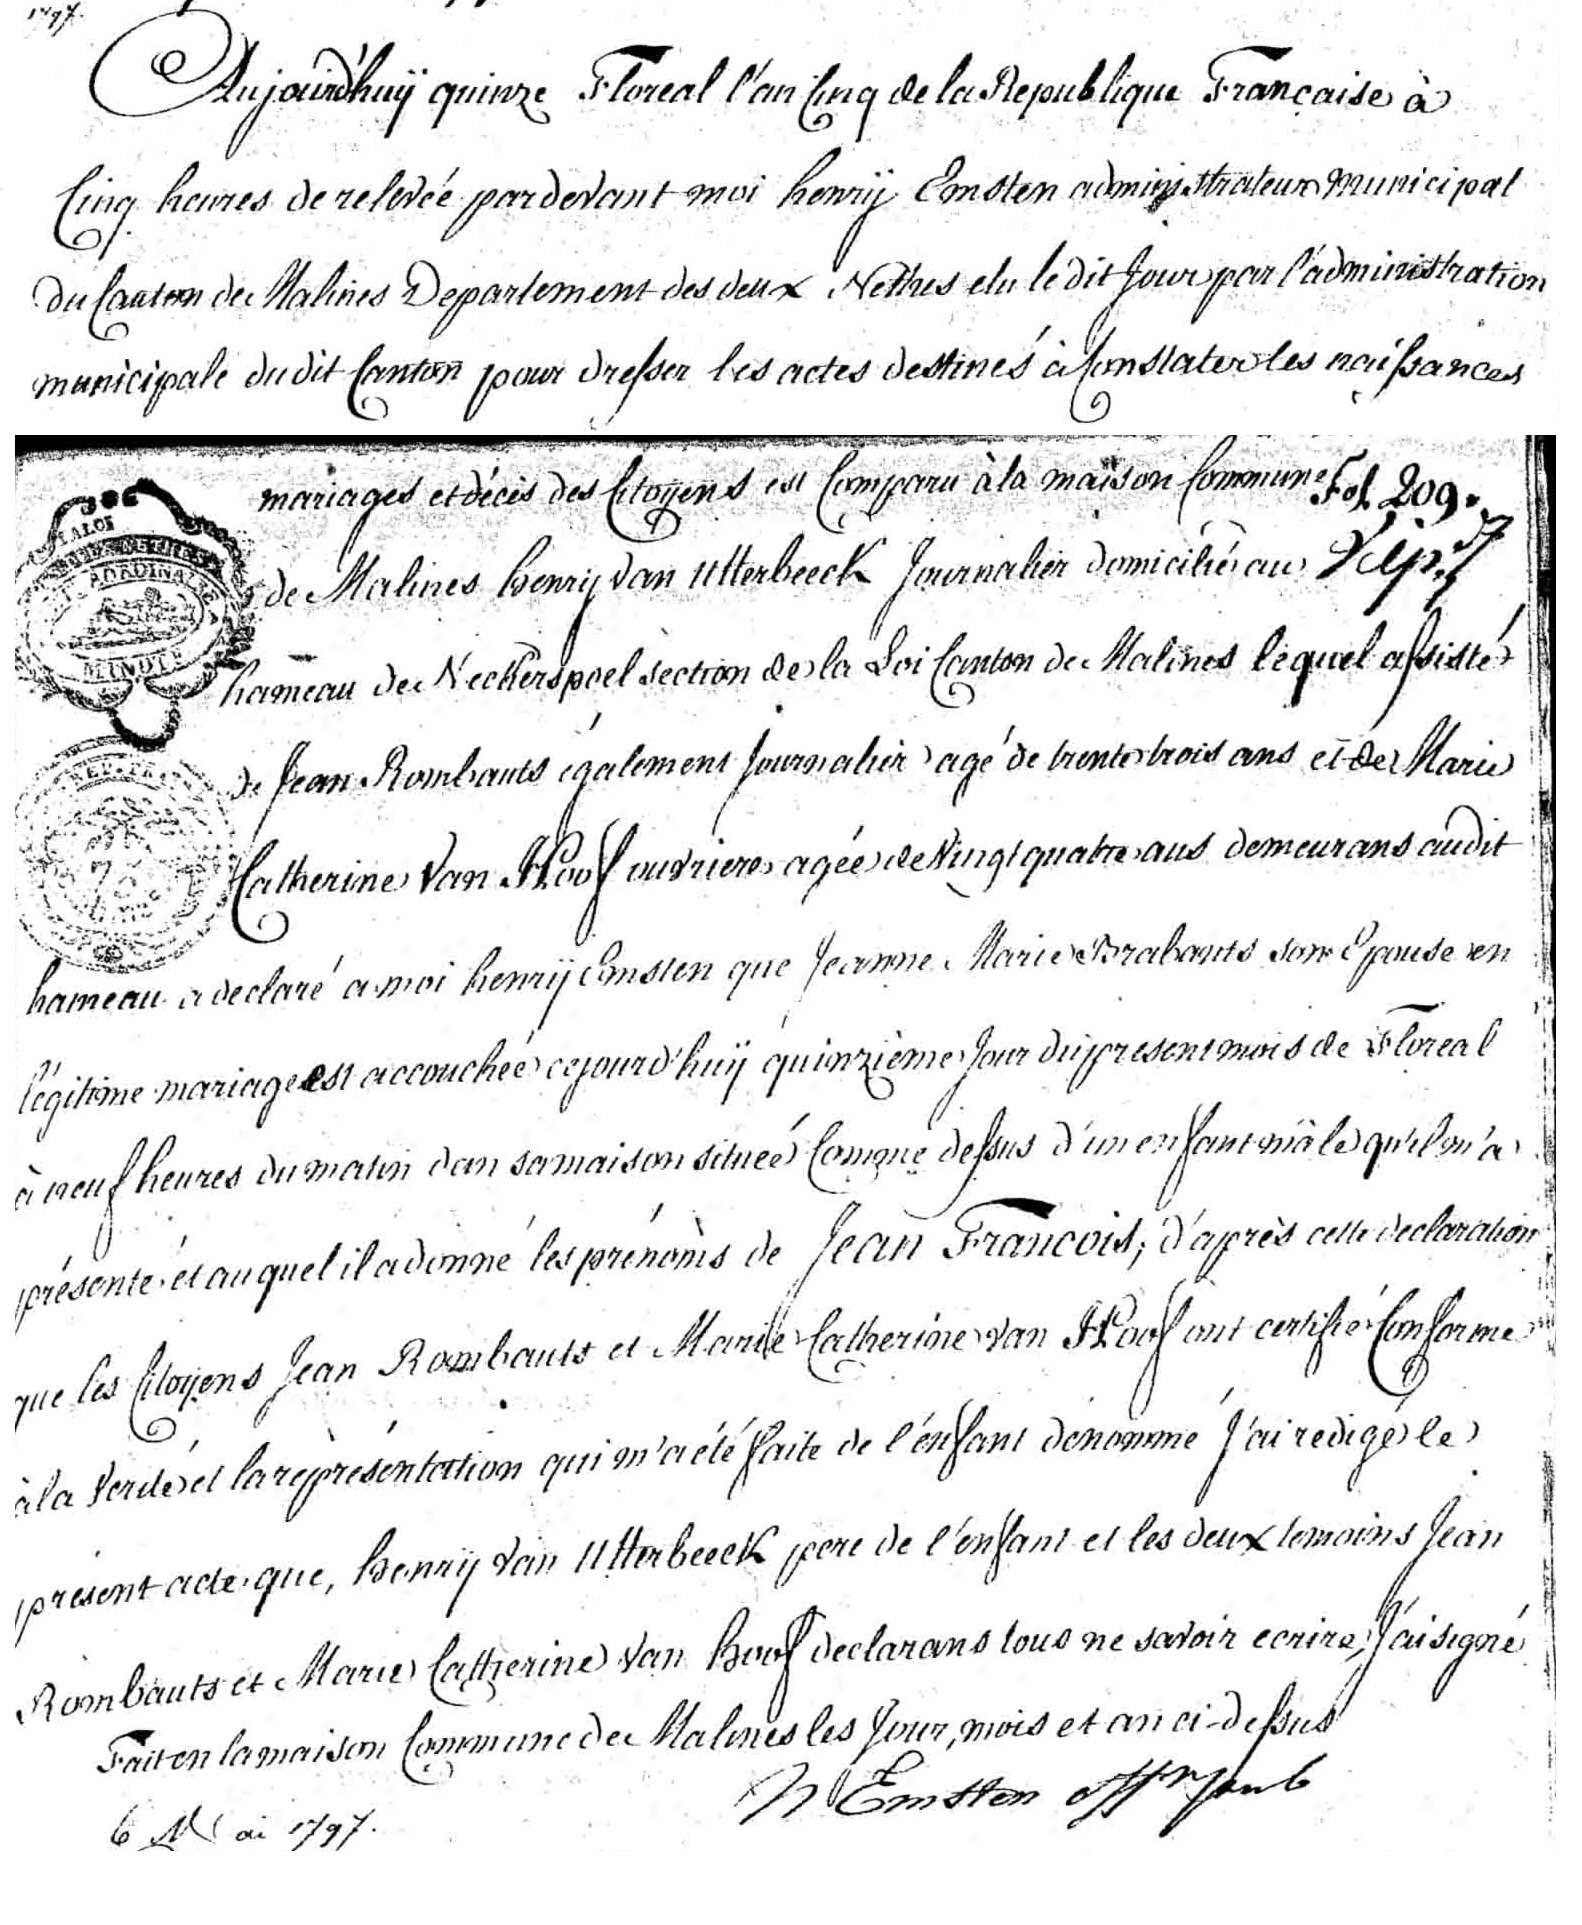 1797.
Aujourd'huÿ quinze Floreal l'an Cinq de la Republique Française à
Cinq heures de relevée pardevant moi henrÿ Emsten administrateur Municipal
du Canton de Malines Departement des deux Nethes elu le dit Jour par l'administration
municipale du dit Canton pour dresser les actes destinés à Constater les naissances
mariages et décès des Citoÿens est Comparu à la maison Commune Fol. 209.
de Malines henrij van Utterbeeck Journalier domicilié au
hameau de Neckerspoel section de la Loi Canton de Malines lequel assisté
de Jean Rombauts également Journalier agé de trente trois ans et de Marie
Catherine Van Hoof ouvriere agée de Vingt quatre ans demeurans audit
hameau a declaré a moi henrÿ Emsten que Jeanne Marie Brabants son Epouse en
légitime mariage est accouchée cejourd'huÿ quinzième Jour du present mois de Floreal
à neuf heures du matin dan sa maison situeé Comme dessus d'un enfant mâle qu'il m'a
présenté et auquel il a donné les prénoms de Jean Francois; d'après cette declaration
que les Citoÿens Jean Rombauts et Marie Catherine van Hoof ont certifié Conforme
à la Verité et la représentation qui m'a été faite de l'énfant dénommé J'ai redigé le
présent acte que, henrÿ van Utterbeeck pere de l'enfant et les deux temoins Jean
Rombauts et Marie Catherine van hoof declarans tous ne savoir ecrire, J'ai signé
Fait en la maison Commune de Malines les Jour, mois et an ci-dessus
H Emsten
6 Mai 1797.
MINUTE